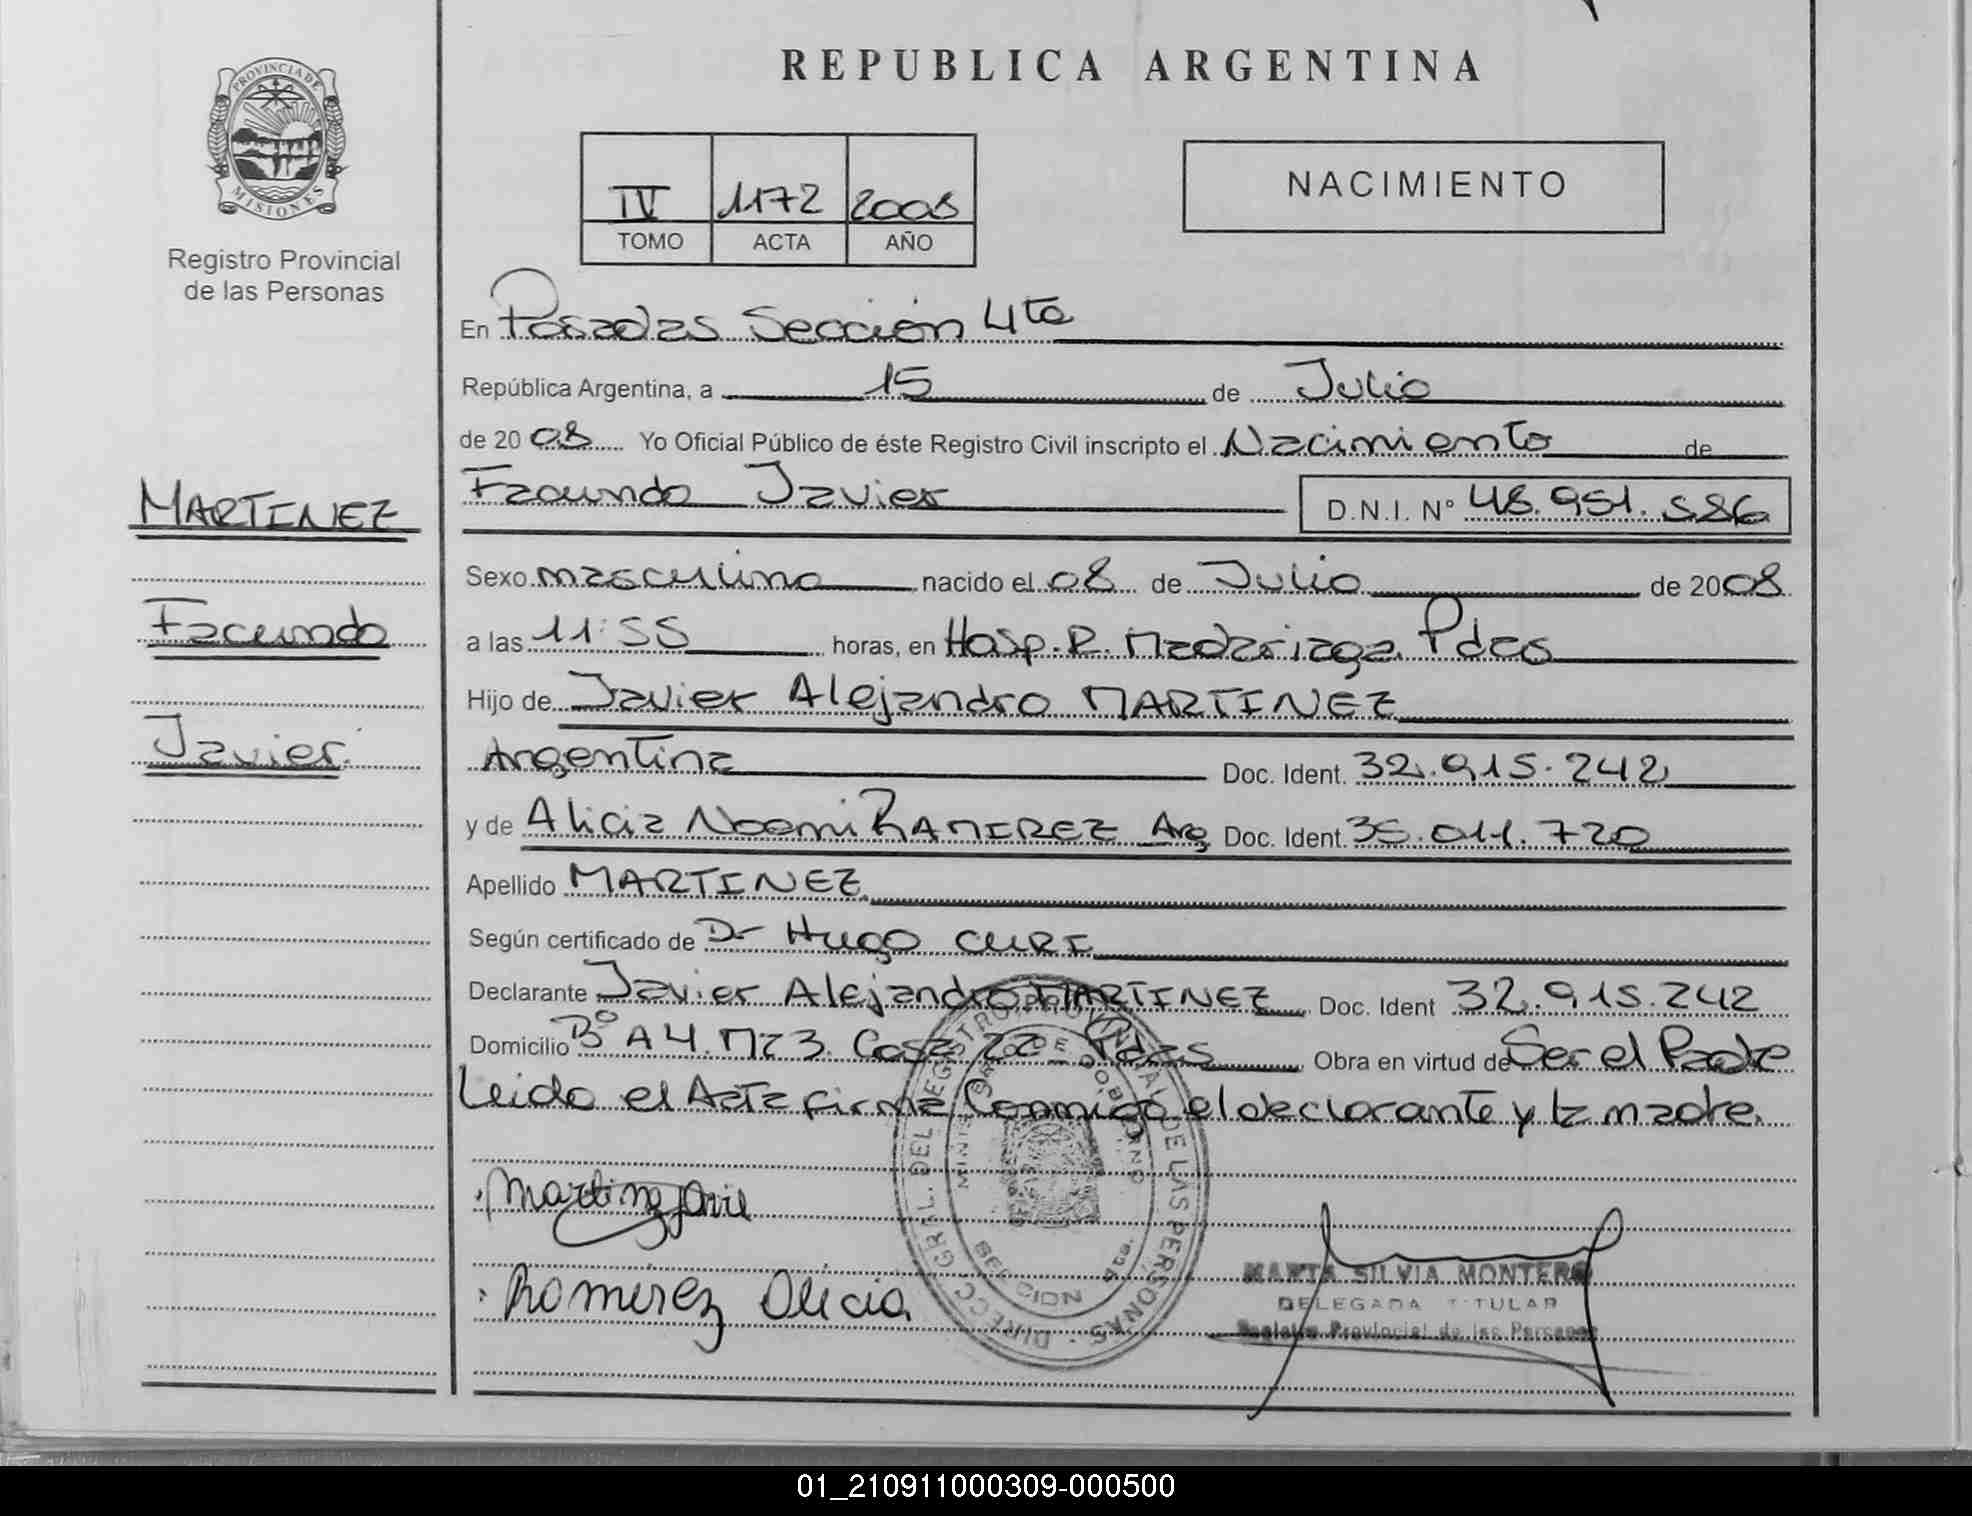 REPUBLICA ARGENTINA
PROVINCIA DE
MISIONES
Registro Provincial
de las Personas
IV 1172 2008
TOMO ACTA AÑO
NACIMIENTO
En Posadas Sección 4ta
República Argentina, a 15 de Julio
de 2008 Yo Oficial Público de éste Registro Civil inscripto el Nacimiento de
Facundo Javier D.N.I. Nº 48.951.586
MARTINEZ
Facundo
Javier
Sexo masculino nacido el 08 de Julio de 2008
a las 11:55 horas, en Hosp. R. Madariaga. Pdas
Hijo de Javier Alejandro MARTINEZ
Argentina Doc. Ident. 32.915.242
y de Alicia Noemi RAMIREZ Arg Doc. Ident. 35.011.720
Apellido MARTINEZ
Según certificado de Dr Hugo CURI
Declarante Javier Alejandro MARTINEZ Doc. Ident 32.915.242
Domicilio Bº A 4. Mz 3. Casa 22 Pdas Obra en virtud de Ser el Padre
Leido el Acta firma Conmigo el declarante y la madre.
DIRECC. GRAL. DEL REGISTRO PROVINCIAL DE LAS PERSONAS
MINISTERIO DE GOBIERNO
Ramirez Alicia
MARTA SILVIA MONTERO
DELEGADA TITULAR
Registro Provincial de las Personas
01_210911000309-000500